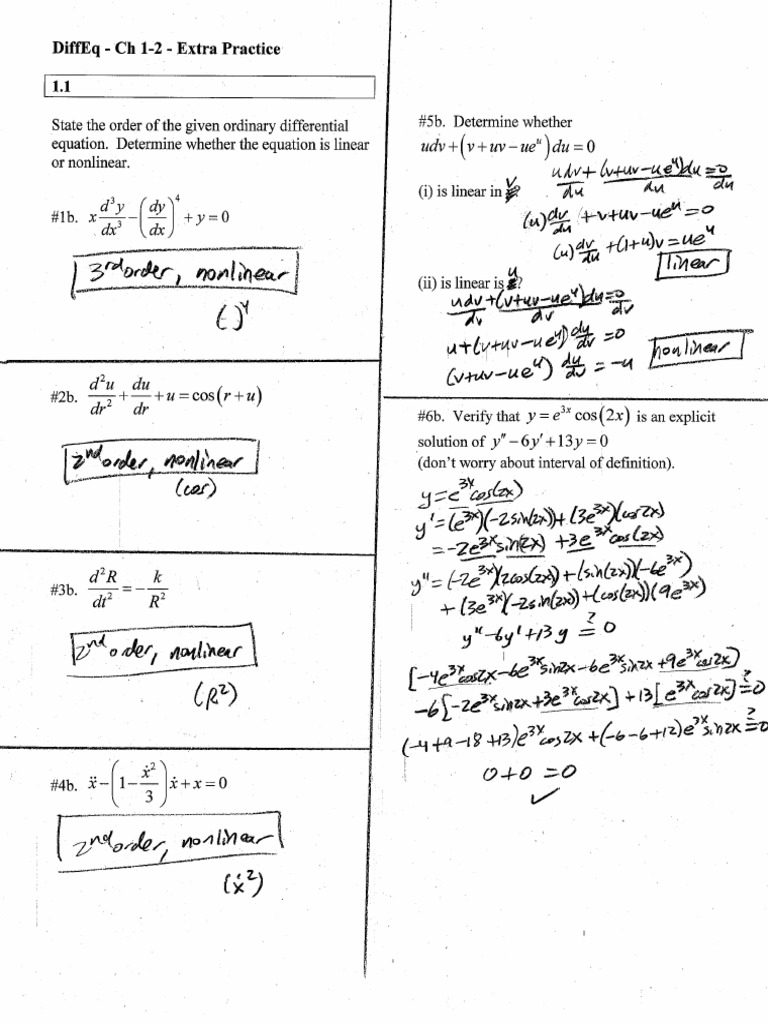 DiffEq - Ch 1-2 - Extra Practice
1.1
State the order of the given ordinary differential
equation. Determine whether the equation is linear
or nonlinear.
#1b. x d³y/dx³ − (dy/dx)⁴ + y = 0
3rd order, nonlinear
( )⁴
#2b. d²u/dr² + du/dr + u = cos(r + u)
2nd order, nonlinear
(cos)
#3b. d²R/dt² = − k/R²
2nd order, nonlinear
(R²)
#4b. ẍ − (1 − ẋ²/3) ẋ + x = 0
2nd order, nonlinear
(ẋ²)
#5b. Determine whether
udv + (v + uv − ueᵘ) du = 0
(i) is linear in v?
udv/du + (v+uv−ueᵘ)du/du = 0/du
(u) dv/du + v+uv−ueᵘ = 0
(u) dv/du + (1+u)v = ueᵘ
linear
(ii) is linear is u?
udv/dv + (v+uv−ueᵘ)du/dv = 0/dv
u + (v+uv−ueᵘ) du/dv = 0
(v+uv−ueᵘ) du/dv = −u
nonlinear
#6b. Verify that y = e³ˣ cos(2x) is an explicit
solution of y″ − 6y′ + 13y = 0
(don't worry about interval of definition).
y = e³ˣ cos(2x)
y' = (e³ˣ)(−2sin(2x)) + (3e³ˣ)(cos(2x))
= −2e³ˣ sin(2x) + 3e³ˣ cos(2x)
y" = (−2e³ˣ)(2cos(2x)) + (sin(2x))(−6e³ˣ)
+ (3e³ˣ)(−2sin(2x)) + (cos(2x))(9e³ˣ)
y" − 6y' + 13y ≟ 0
[−4e³ˣ cos2x − 6e³ˣ sin2x − 6e³ˣ sin2x + 9e³ˣ cos2x)
−6[−2e³ˣ sin2x + 3e³ˣ cos2x] + 13[e³ˣ cos2x] ≟ 0
(−4+9−18+13)e³ˣ cos2x + (−6−6+12)e³ˣ sin2x ≟ 0
0+0 = 0
✓